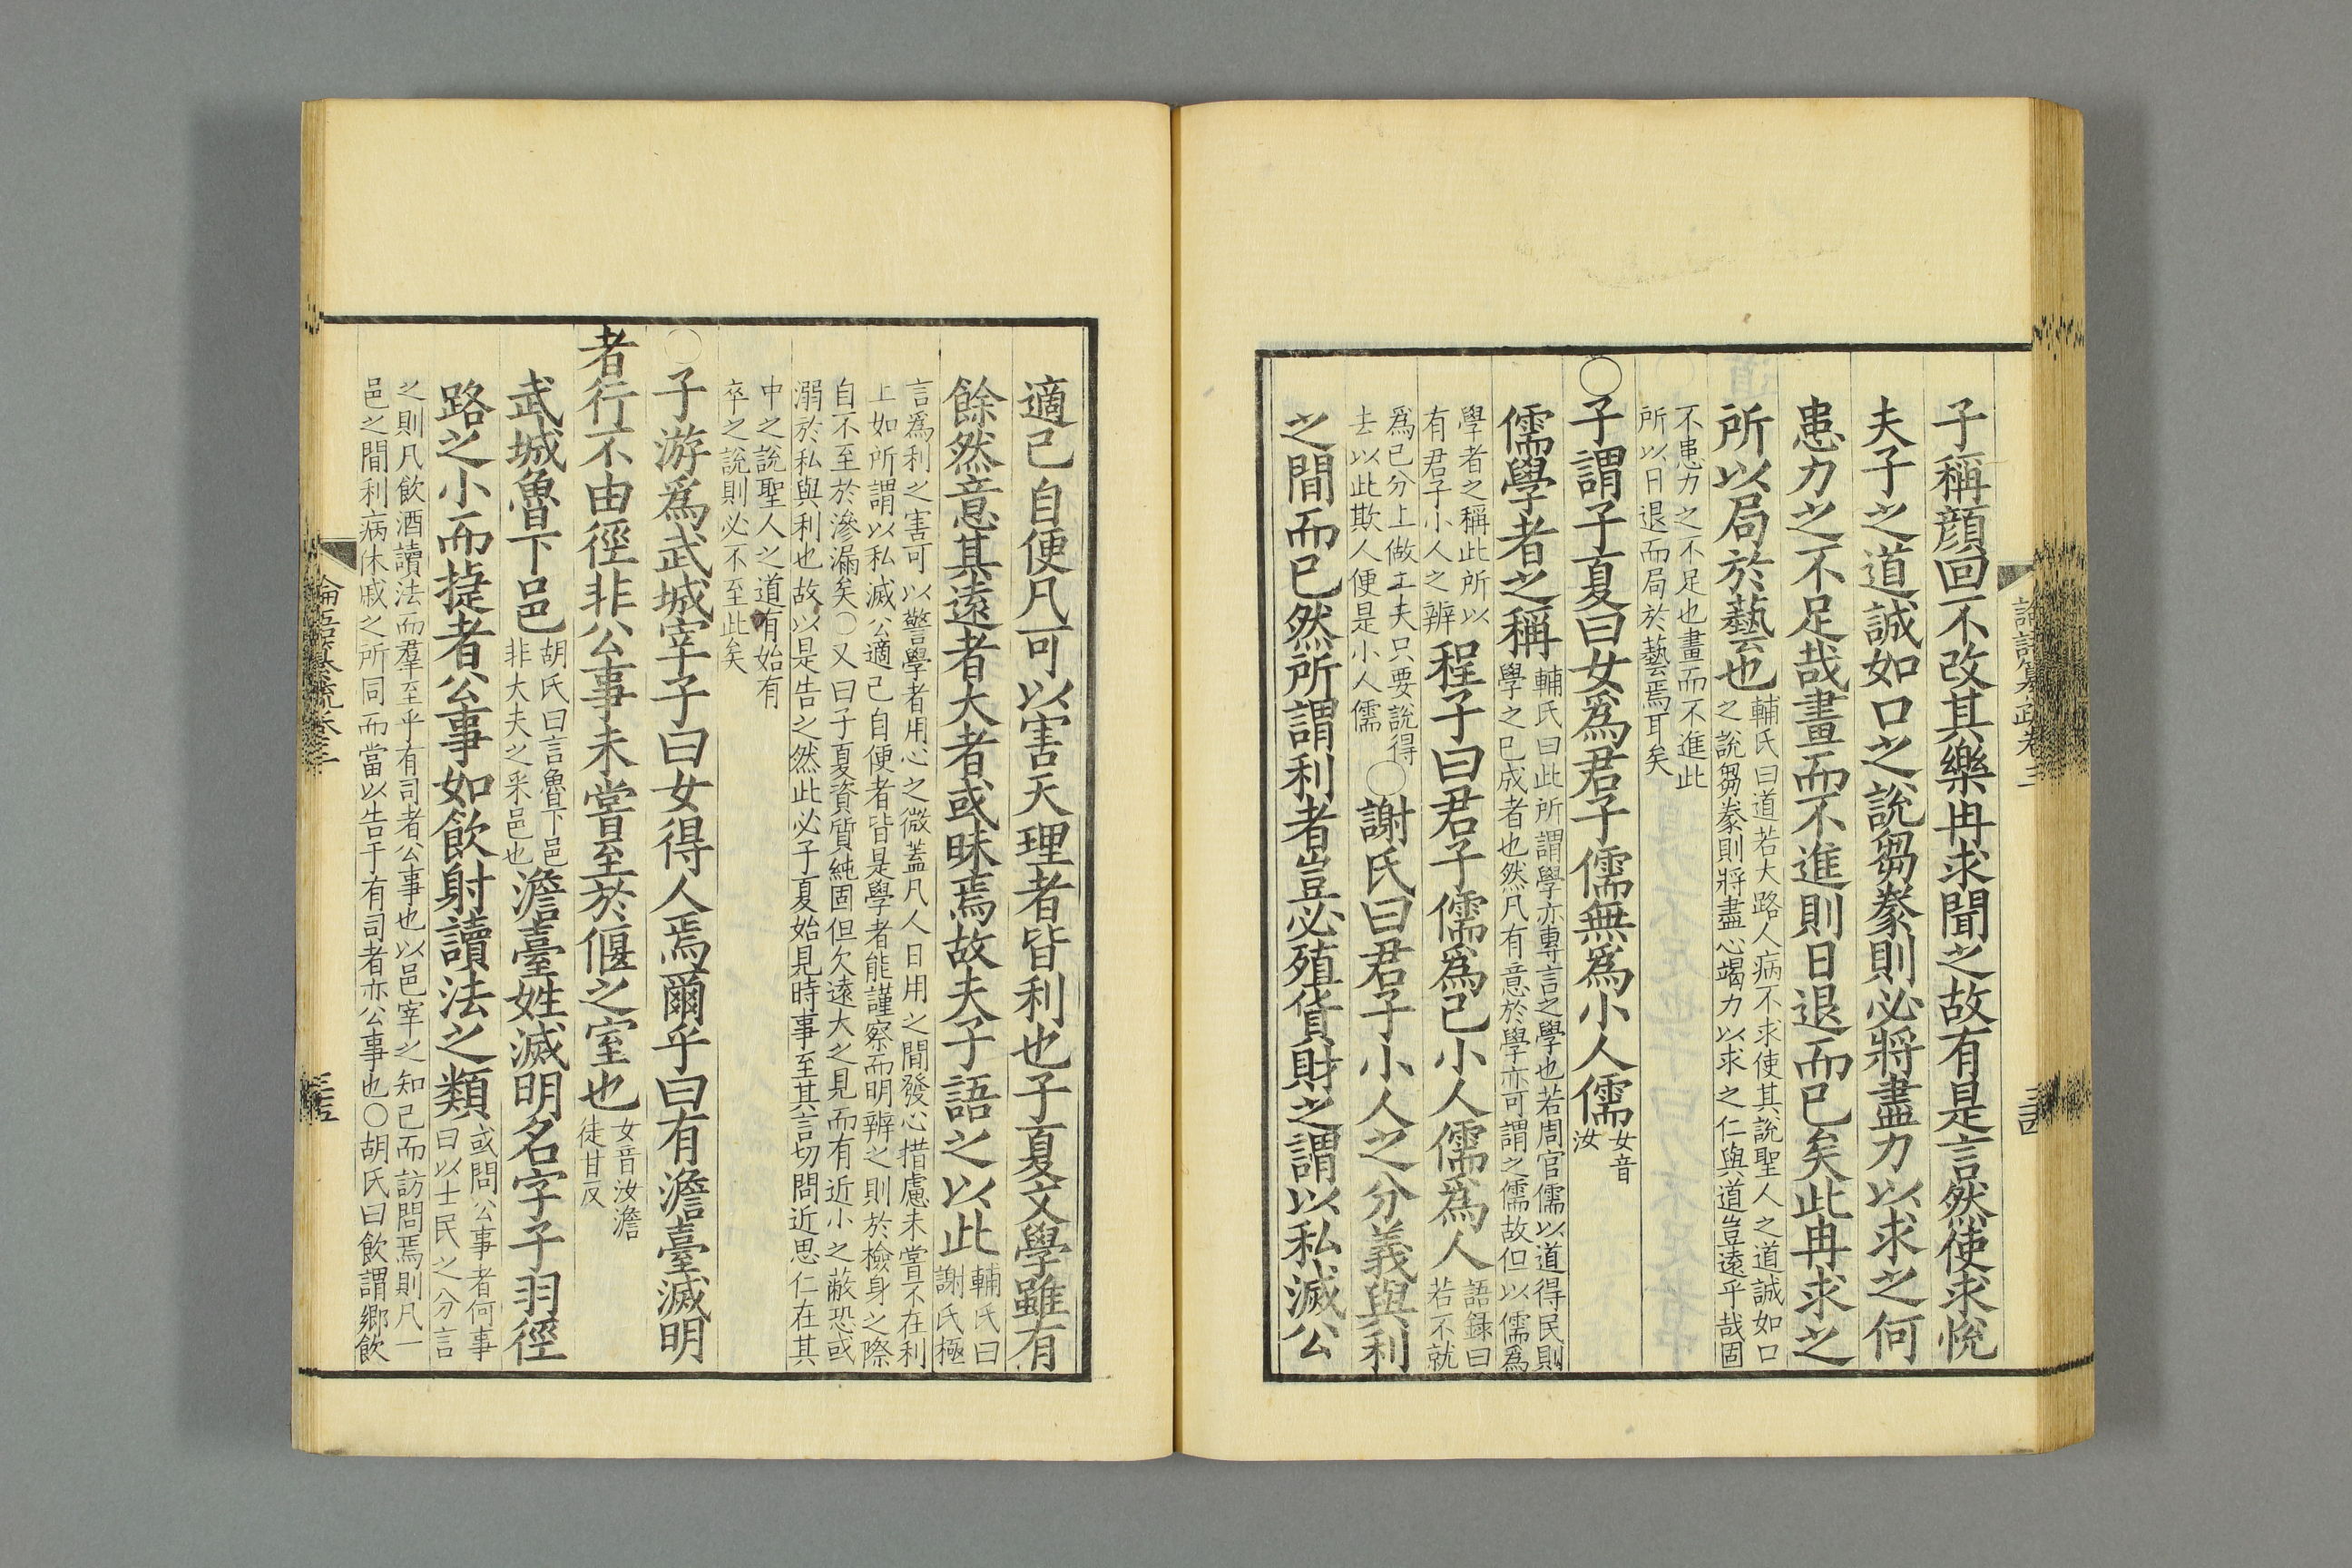 論語纂疏卷三
三四
子稱顏回不改其樂冉求聞之故有是言然使求悅
夫子之道誠如口之說芻豢則必將盡力以求之何
患力之不足哉畫而不進則日退而已矣此冉求之
所以局於藝也輔氏曰道若大路人病不求使其說聖人之道誠如口
之說芻豢則將盡心竭力以求之仁與道豈遠乎哉固
不患力之不足也畫而不進此
所以日退而局於藝焉耳矣
○子謂子夏曰女爲君子儒無爲小人儒女音
汝
儒學者之稱輔氏曰此所謂學亦專言之學也若周官儒以道得民則
學之已成者也然凡有意於學亦可謂之儒故但以儒爲
學者之稱此所以
有君子小人之辨
程子曰君子儒爲己小人儒爲人語錄曰
若不就
爲己分上做工夫只要說得
去以此欺人便是小人儒
○謝氏曰君子小人之分義與利
之間而已然所謂利者豈必殖貨財之謂以私滅公
適己自便凡可以害天理者皆利也子夏文學雖有
餘然意其遠者大者或昧焉故夫子語之以此輔氏曰
謝氏極
言爲利之害可以警學者用心之微蓋凡人日用之間發心措慮未嘗不在利
上如所謂以私滅公適己自便者皆是學者能謹察而明辨之則於檢身之際
自不至於滲漏矣○又曰子夏資質純固但欠遠大之見而有近小之蔽恐或
溺於私與利也故以是告之然此必子夏始見時事至其言切問近思仁在其
中之說聖人之道有始有
卒之說則必不至此矣
○子游爲武城宰子曰女得人焉爾乎曰有澹臺滅明
者行不由徑非公事未嘗至於偃之室也女音汝澹
徒甘反
武城魯下邑胡氏曰言魯下邑
非大夫之釆邑也
澹臺姓滅明名字子羽徑
路之小而捷者公事如飲射讀法之類或問公事者何事
曰以士民之分言
之則凡飲酒讀法而羣至乎有司者公事也以邑宰之知己而訪問焉則凡一
邑之間利病休戚之所同而當以告于有司者亦公事也○胡氏曰飲謂鄉飲
論語纂疏卷三
三五